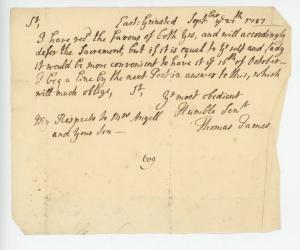 Sr, East-Grinsted Septber ye 21th 1787
I have recd the Favour of both Yrs, and will accordingly
defer the Sacrament, but if it is equal to Yr self and Lady
it would be more convenient to have it ye 16th of October
I beg a line by the next Post in answer to this, which
will much oblige, Sr,
Yr most obedient
Humble Servt
Thomas James
My Respects to Mrs Angell
and your Son